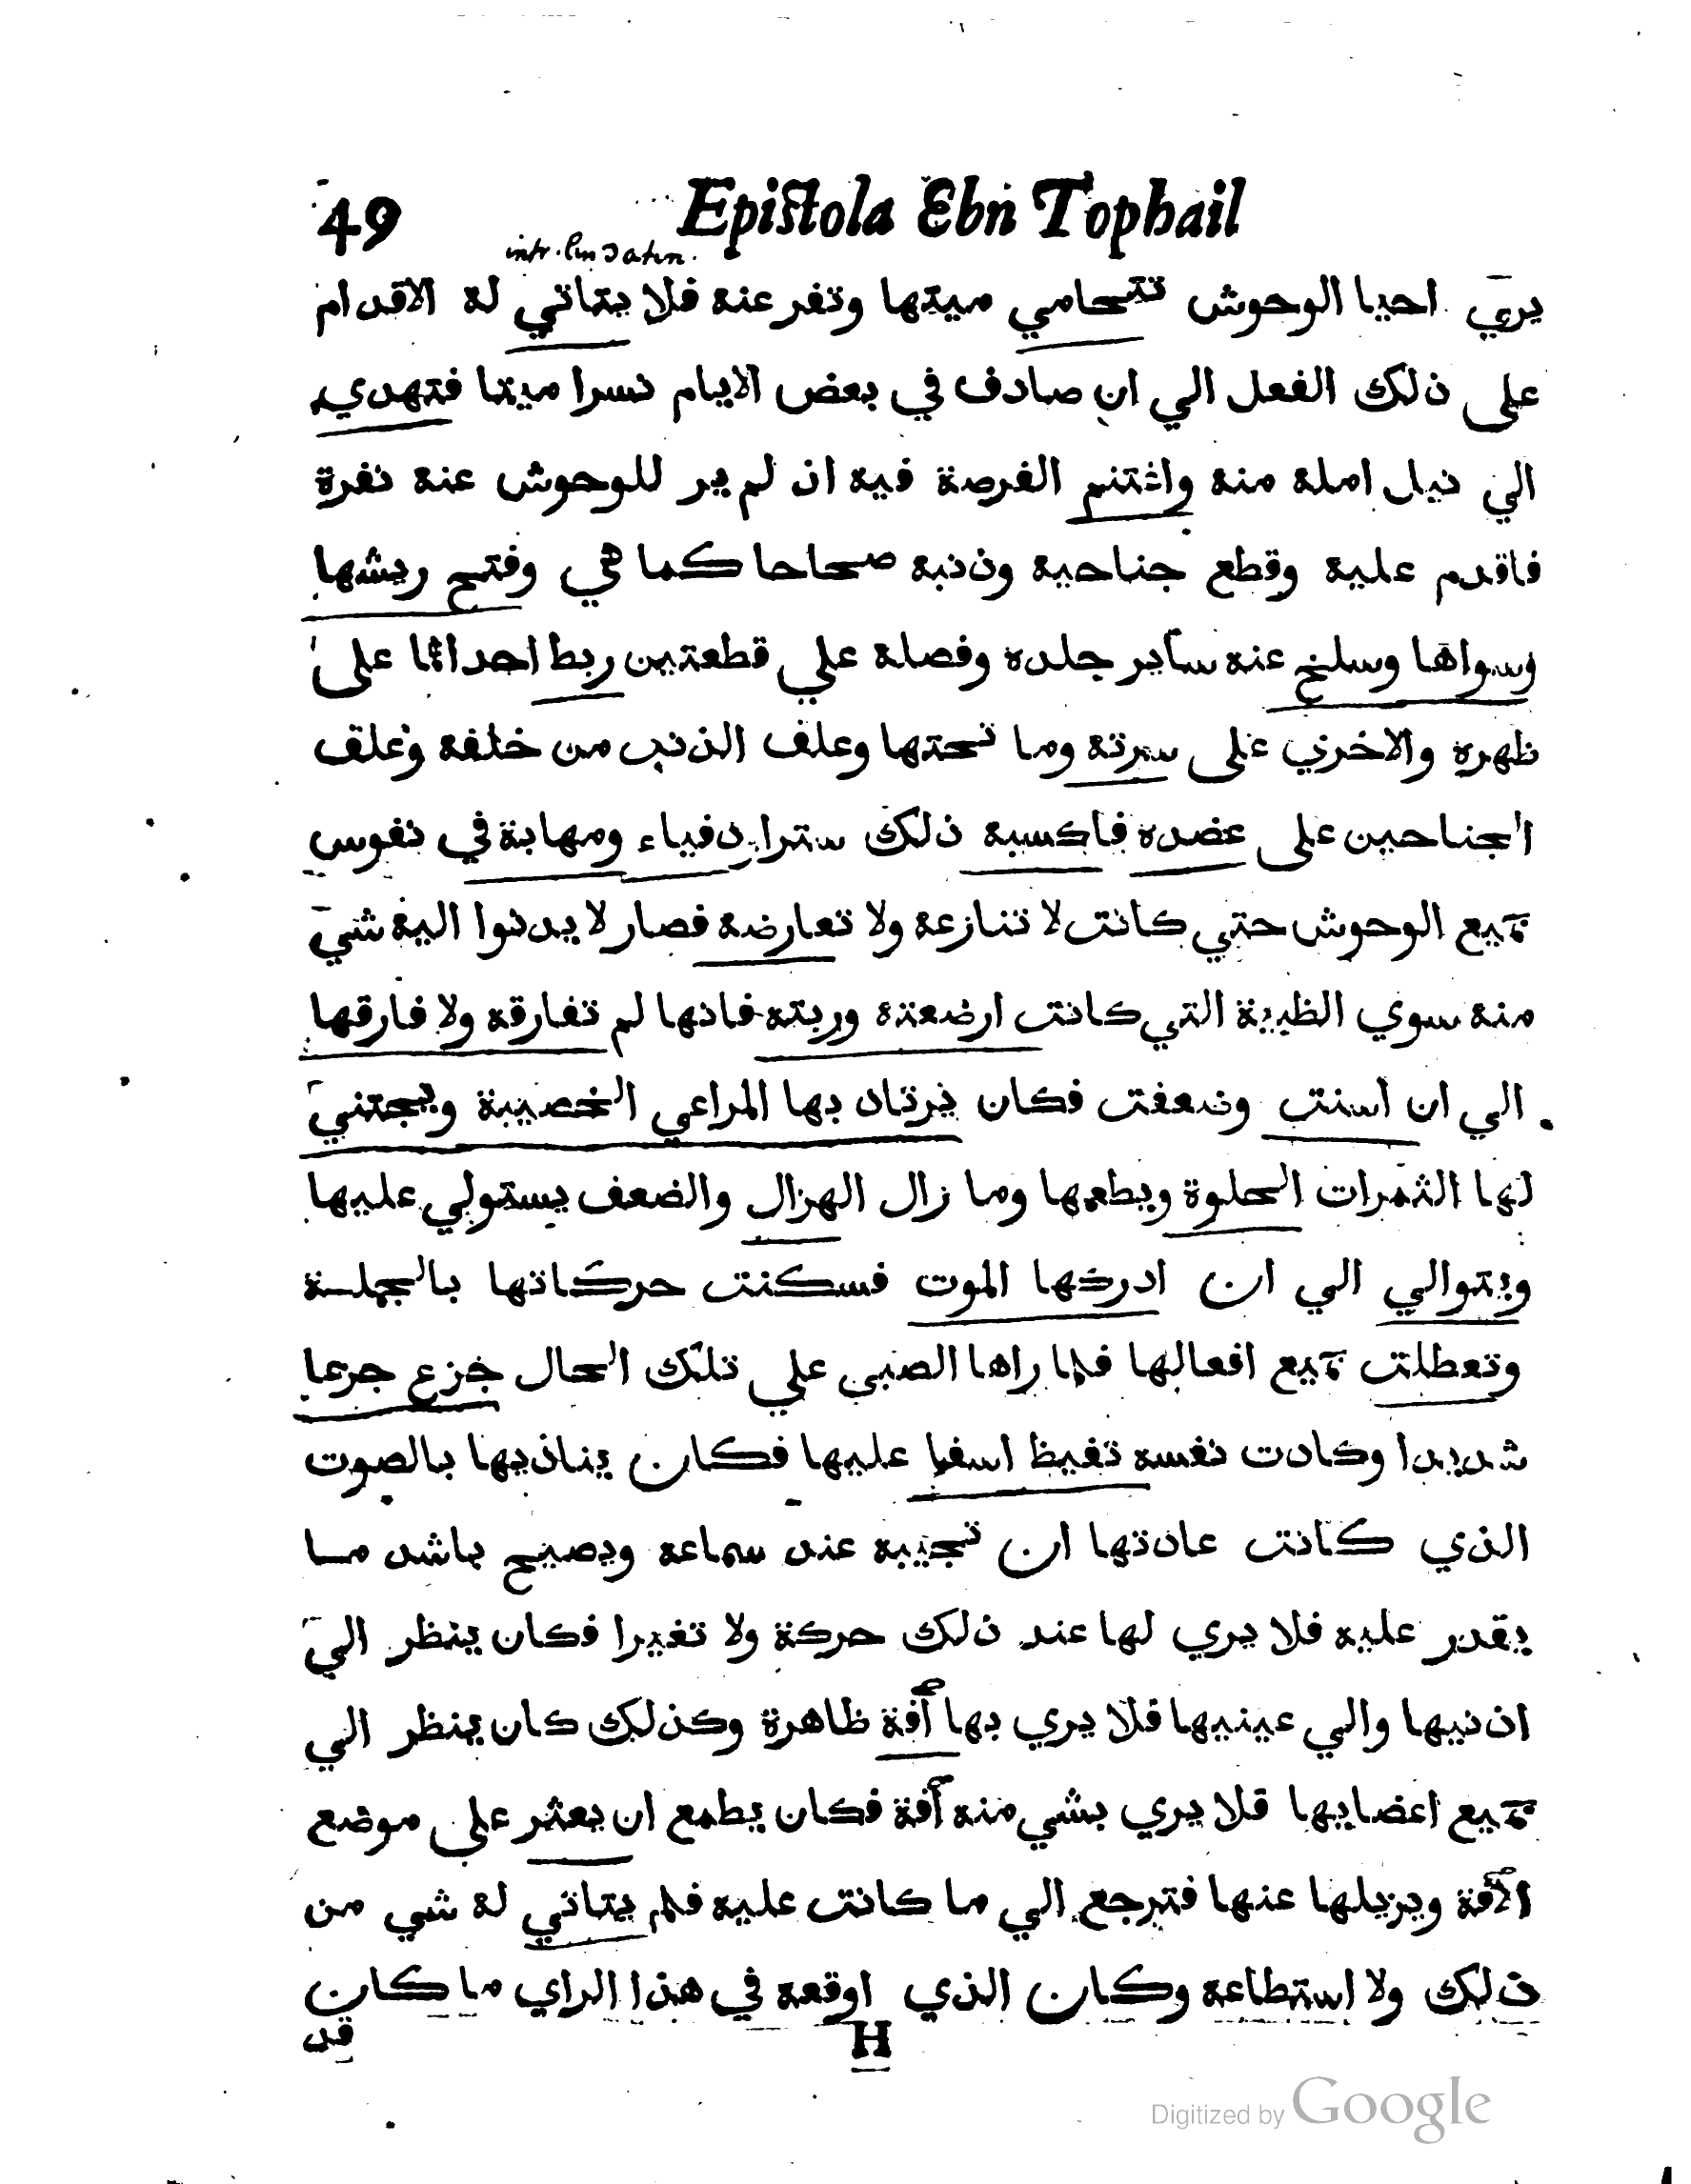 49 Epistola Ebn Tophail
يري احيا الوحوش تتحامي ميتها وتفر عنه فلا يتاتي له الاقدام
على ذلك الفعل الي ان صادف في بعض الايام نسرا ميتا فتهدي
الي نيل امله منه واغتنم الفرصة فيه ان لم ير للوحوش عنه نفرة
فاقدم عليه وقطع جناحيه وذنبه صحاحا كما هي وفتح ريشها
وسواها وسلخ عنه ساير جلده وفصله علي قطعتين ربط احداها على
ظهره والاخري على سرته وما تحتها وعلق الذنب من خلفه وعلق
الجناحين على عضده فاكسبه ذلك سترا دفياء ومهابة في نفوس
جميع الوحوش حتي كانت لا تنازعه ولا تعارضه فصار لا يدنوا اليه شي
منه سوي الظبية التي كانت ارضعته وربته فانها لم تفارقه ولا فارقها
الي ان اسنت وضعفت فكان يرتاد بها المراعي الخصيبة ويجتني
لها الثمرات الحلوة ويطعمها وما زال الهزال والضعف يستولي عليها
ويتوالي الي ان ادركها الموت فسكنت حركاتها بالجملة
وتعطلت جميع افعالها فلما راها الصبي علي تلك الحال جزع جزعا
شديدا وكادت نفسه تفيظ اسفا عليها فكان يناديها بالصوت
الذي كانت عادتها ان تجيبه عند سماعه ويصيح باشد ما
يقدر عليه فلا يري لها عند ذلك حركة ولا تغيرا فكان ينظر الي
اذنيها والي عينيها فلا يري بها آفة ظاهرة وكذلك كان ينظر الي
جميع اعضايها فلا يري بشي منه آفة فكان يطمع ان يعثر على موضع
الآفة ويزيلها عنها فترجع الي ما كانت عليه فلم يتاتي له شي من
ذلك ولا استطاعه وكان الذي اوقعه في هذا الراي ما كان
H قد
Digitized by Google